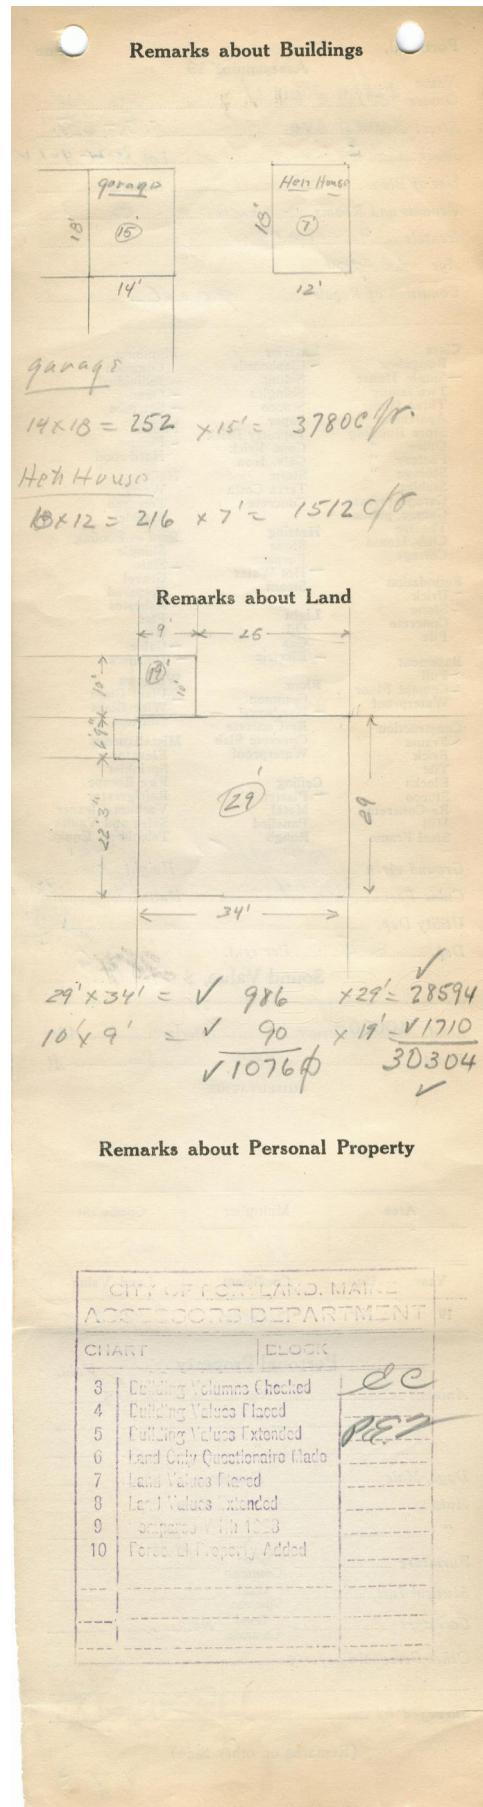 Remarks about Buildings
garage
Hen House
18'
15'
18'
7'
14'
12'
garage
14x18 = 252 x15' = 3780 c/fr.
Hen House
18x12 = 216 x 7' = 1512 c/f
Remarks about Land
9' 25
19'
10'
10'
6'9"
22'3"
29'
29
34'
29' x 34' = ✓ 986 x29' = 28594 ✓
10' x 9' = ✓ 90 x 19' = ✓1710
✓1076 30304
✓
Remarks about Personal Property
CITY OF PORTLAND, MAINE
ASSESSORS DEPARTMENT
CHART BLOCK
3 Building Volumes Checked
4 Building Values Placed
5 Building Values Extended
6 Land Only Questionaire Made
7 Land Values Placed
8 Land Values Extended
9 Compared With
10 Personal Property Added